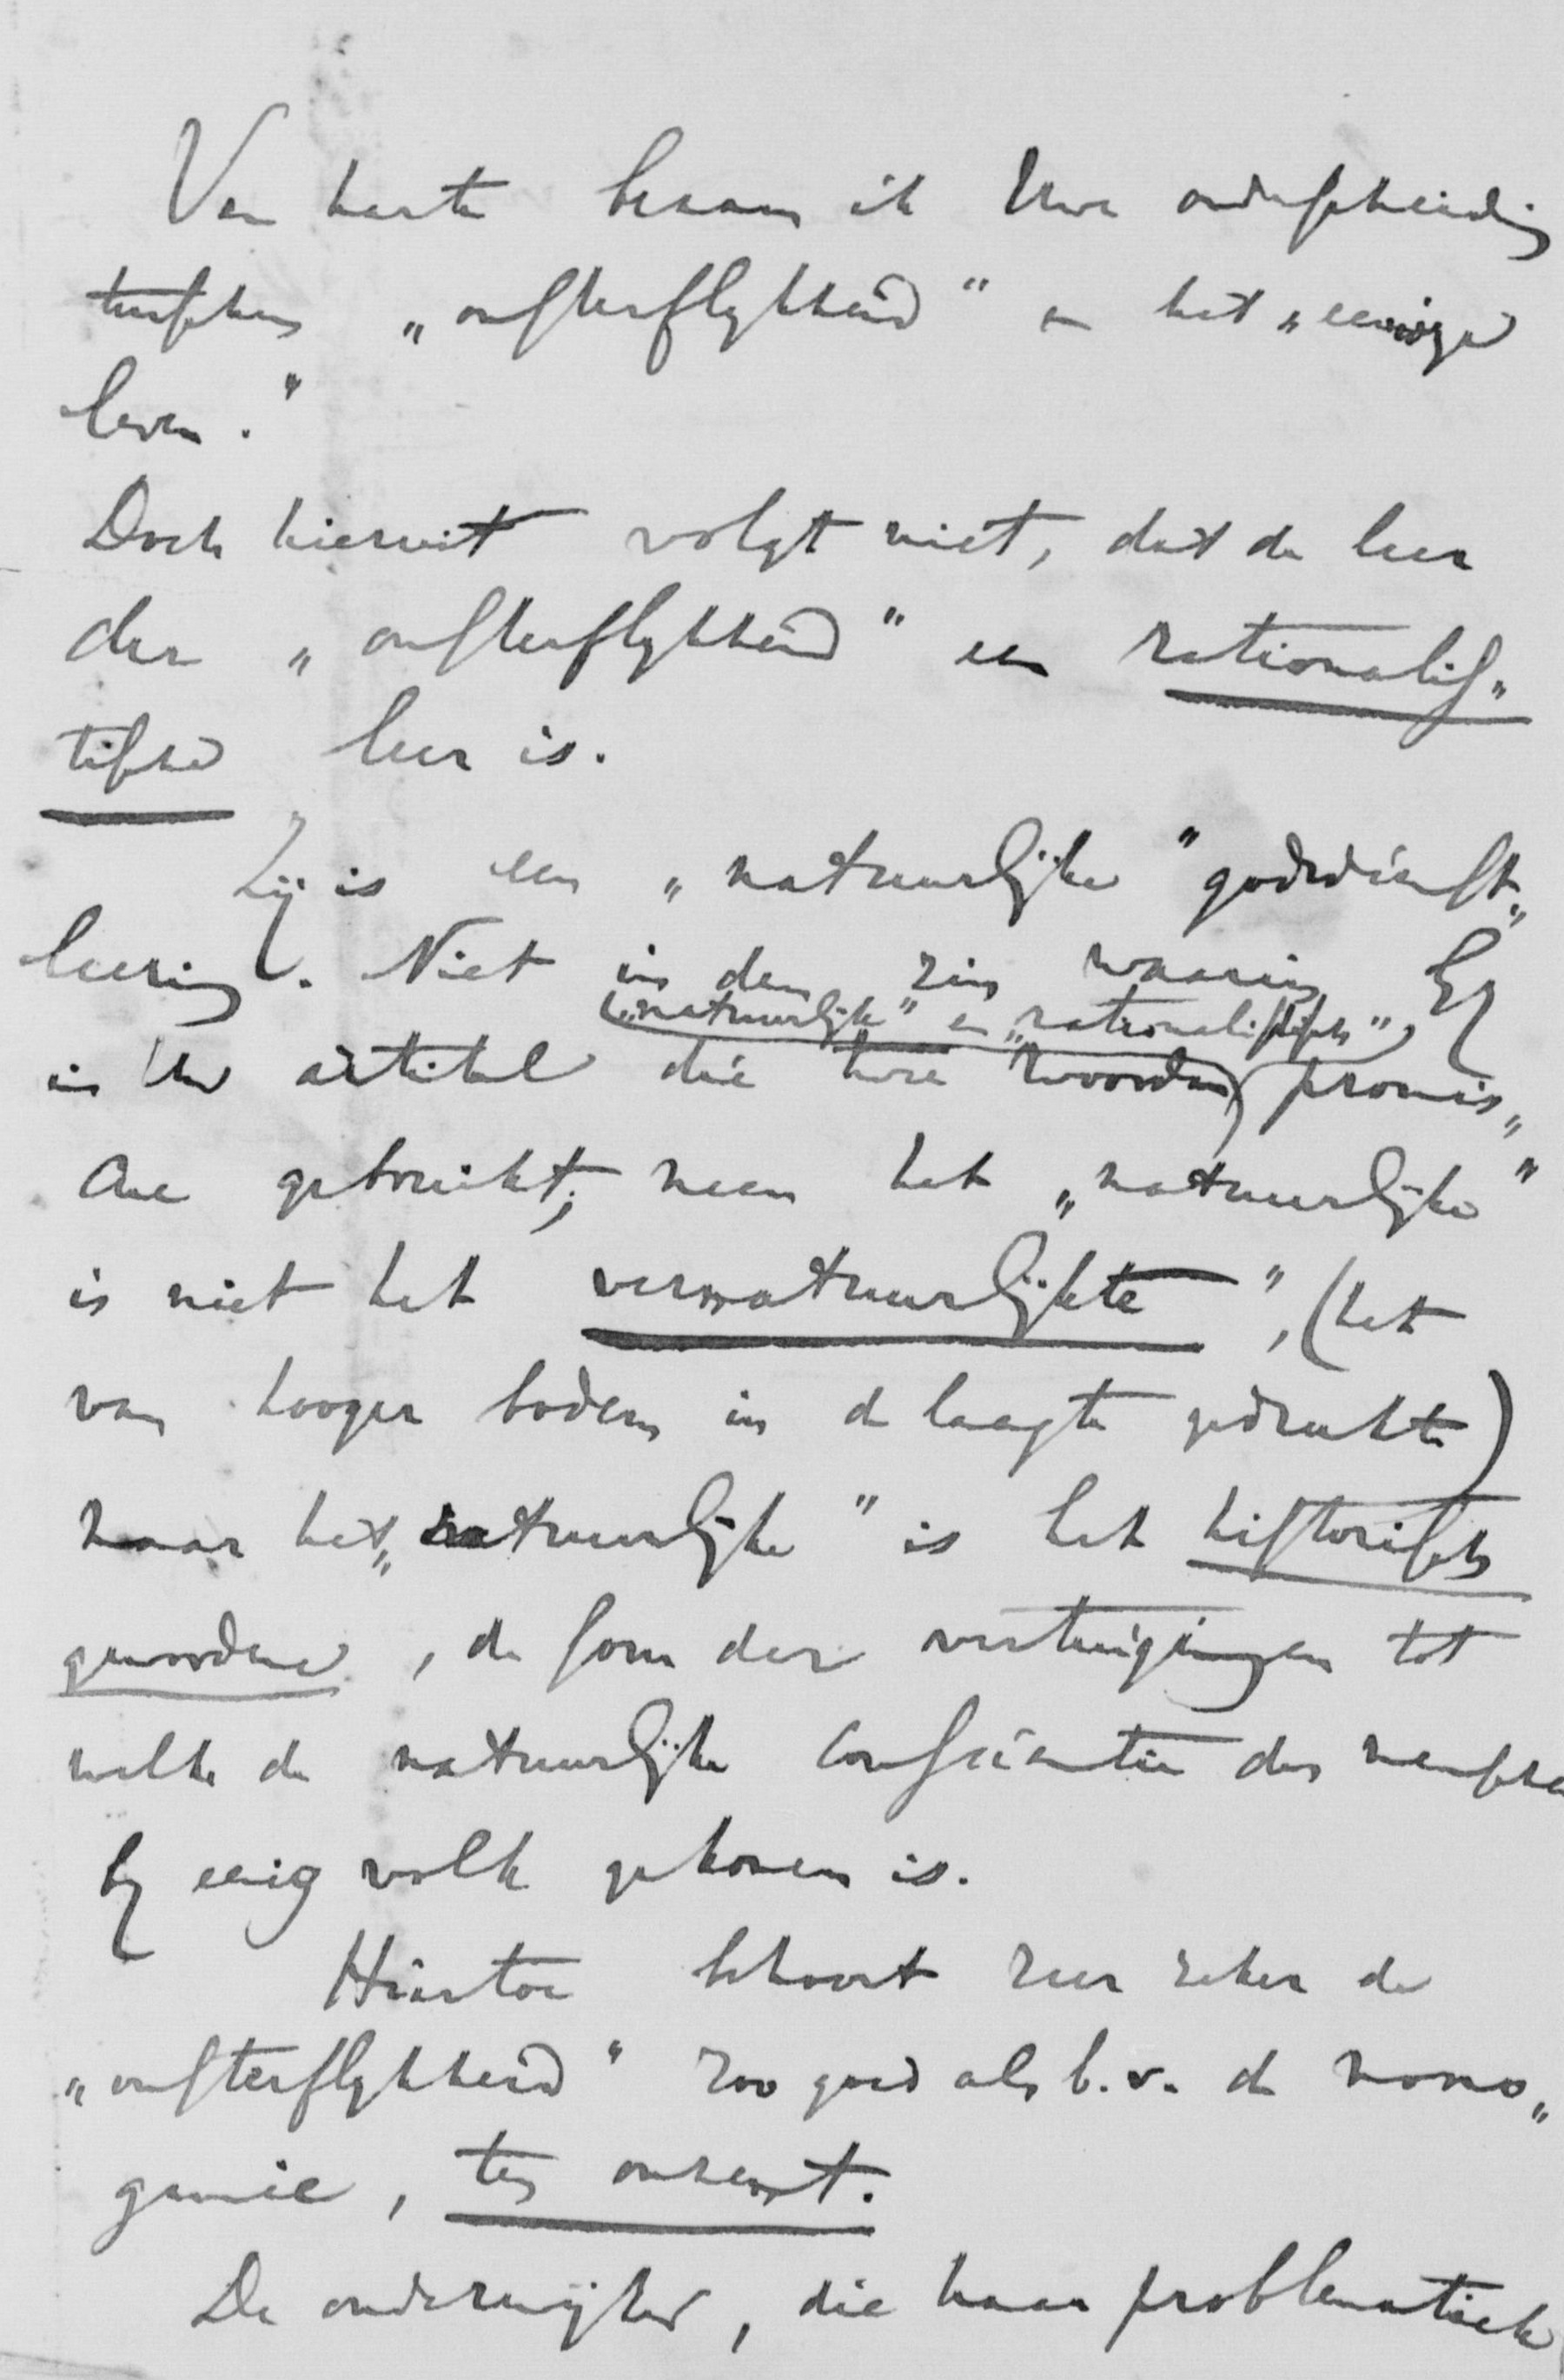 Van harte beaam ik Uwe onderscheiding
tusschen „onsterflykheid" en het „eeuwige
leven."
Doch hieruit volgt niet, dat de leer
der „onsterflykheid" een rationalis„
tische leer is.
Zij is een „natuurlijke" godsdienst„
leering. Niet in den zin waarin Gy
(„natuurlijk" en „rationalistisch",
in Uw artikel die twee woorden) promis„
cue gebruikt; neen het „natuurlijke"
is niet het vernatuurlijkte", (het
van hooger bodem in de laagte gedrukte)
maar het „natuurlijke" is het historisch
gewordene, de som der overtuigingen tot
welke de natuurlijke conscientie des menschen
by eenig volk gekomen is.
Hiertoe behoort zeer zeker de
„onsterflykheid" zoo goed als b.v. de mono„
gamie, ten onzent.
De onderwijzer, die haar problematiek